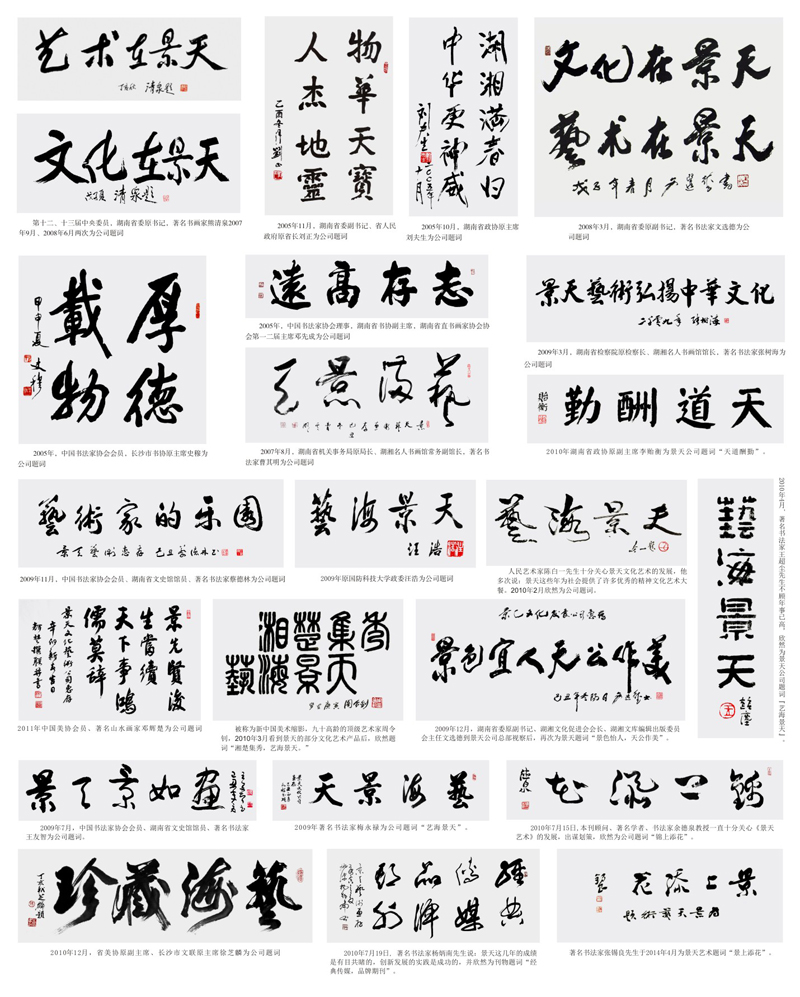 艺术在景天
清泉题
文化在景天
清泉题
第十二、十三届中央委员，湖南省委原书记，著名书画家熊清泉2007
年9月、2008年6月两次为公司题词
物華天寶
人杰地靈
2005年11月，湖南省委副书记、省人民
政府原省长刘正为公司题词
湖湘满春归
中华更神威
刘夫生
二〇〇五年
十一月
2005年10月，湖南省政协原主席
刘夫生为公司题词
文化在景天
藝术在景天
2008年3月，湖南省委原副书记，著名书法家文选德为公
司题词
厚德
載物
甲申夏
史穆
2005年，中国书法家协会会员，长沙市书协原主席史穆为
公司题词
遠高存志
2005年，中国书法家协会理事，湖南省书协副主席，湖南省直书画家协会协
会第一二届主席邓先成为公司题词
藝海景天
2007年8月，湖南省机关事务局原局长、湖湘名人书画馆常务副馆长，著名书
法家曹其明为公司题词
景天藝術弘揚中華文化
二〇〇九年
2009年3月，湖南省检察院原检察长、湖湘名人书画馆馆长，著名书法家张树海为
公司题词
勤酬道天
貽衡
2010年湖南省政协原副主席李贻衡为景天公司题词“天道酬勤”。
藝術家的乐園
2009年11月，中国书法家协会会员、湖南省文史馆馆员、著名书法家蔡德林为公司题词
藝海景天
汪浩
2009年原国防科技大学政委汪浩为公司题词
藝海景天
人民艺术家陈白一先生十分关心景天文化艺术的发展，他
多次说：景天这些年为社会提供了许多优秀的精神文化艺术大
餐。2010年2月欣然为公司题词。
藝海景天
2010年4月，著名书法家王超尘先生不顾年事已高，欣然为景天公司题词『艺海景天』。
景先賢後
生當續
天下事鴻
儒莫辞
2011年中国美协会员、著名山水画家邓辉楚为公司题词
湘楚集秀
藝海景天
被称为新中国美术缩影，九十高龄的顶级艺术家周令
钊，2010年3月看到景天的部分文化艺术产品后，欣然题
词“湘楚集秀，艺海景天。”
景色宜人天公作美
2009年12月，湖南省委原副书记、湖湘文化促进会会长、湖湘文库编辑出版委员
会主任文选德到景天公司总部视察后，再次为景天题词“景色怡人，天公作美”。
景天景如画
2009年7月，中国书法家协会会员、湖南省文史馆馆员、著名书法家
王友智为公司题词。
天景海藝
2009年著名书法家梅永禄为公司题词“艺海景天”。
花添上錦
2010年7月15日，本刊顾问、著名学者、书法家余德泉教授一直十分关心《景天
艺术》的发展，出谋划策，欣然为公司题词“锦上添花”。
珍藏海藝
2010年12月，省美协原副主席、长沙市文联原主席徐芝麟为公司题词
經典
傳媒
品牌
期刊
2010年7月19日，著名书法家杨炳南先生说：景天这几年的成绩
是有目共睹的，创新发展的实践是成功的，并欣然为刊物题词“经
典传媒，品牌期刊”。
花添上景
著名书法家张锡良先生于2014年4月为景天艺术题词“景上添花”。